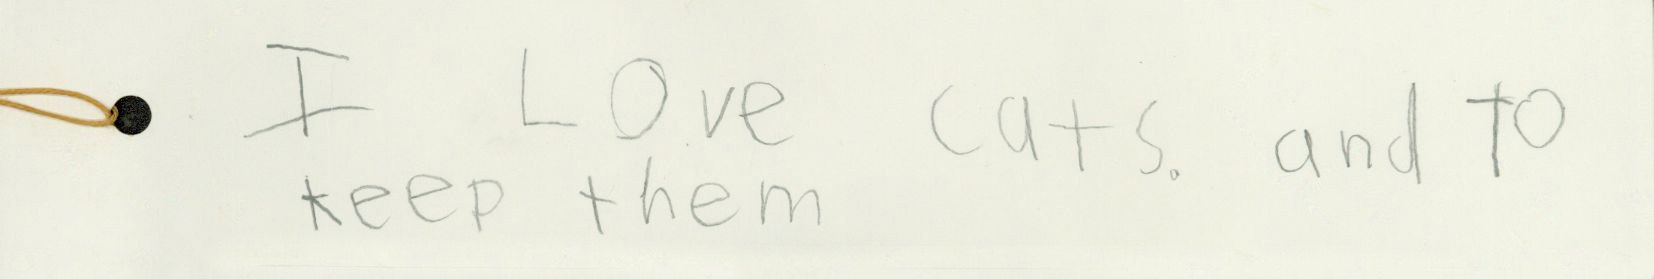 I LOve cats. and to
keep them